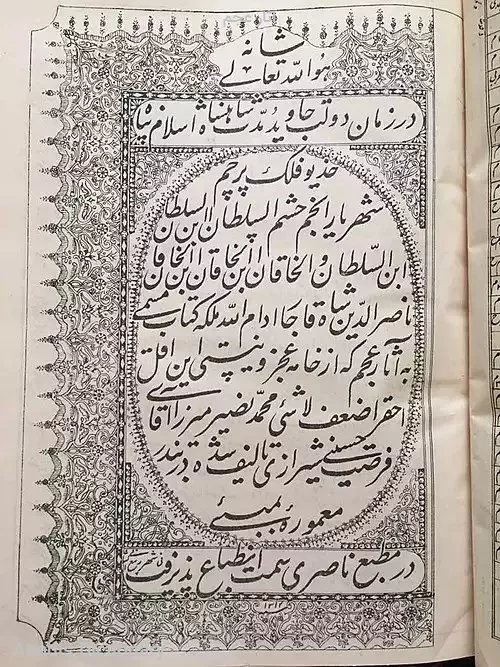 هو الله تعالی شانه
در زمان دولت جاوید مدت شاهنشاه اسلام پناه
خدیو فلک پرچم
شهریار انجم حشم السلطان ابن
ابن السلطان و الخاقان ابن الخاقان ابن الخاقان
ناصر الدین شاه قاجار ادام الله ملکه کتاب مسمی
به آثار عجم که از خامه عجز و نیستی این اقل
احقر اضعف لاشئی محمد نصیر میرزا آقای
فرصت حسینی شیرازی تالیف شده در بندر
معموره بمبئی
در مطبع ناصری سمت انطباع پذیرفت
۱۳۱۴